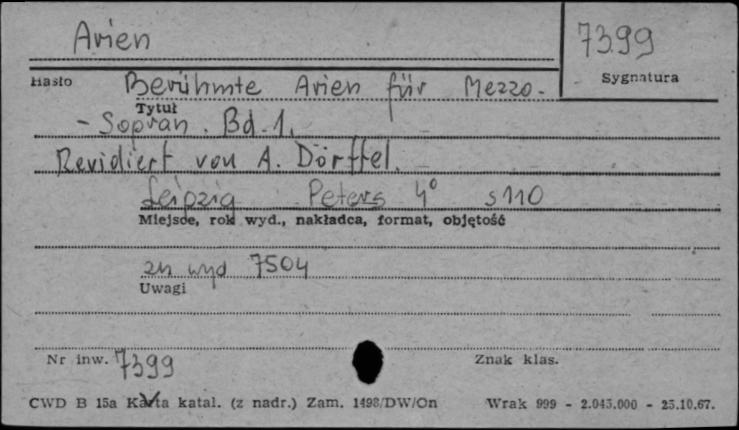 Arien
7399
Hasło
Sygnatura
Berühmte Arien für Mezzo-
Tytuł
- Sopran. Bd. 1.
Revidiert von A. Dörffel.
Leipzig Peters 4° s 110
Miejsce, rok wyd., nakładca, format, objętość
zn wyd 7504
Uwagi
Nr inw. 7399
Znak klas.
CWD B 15a Karta katal. (z nadr.) Zam. 1498/DW/On Wrak 999 - 2.045.000 - 25.10.67.